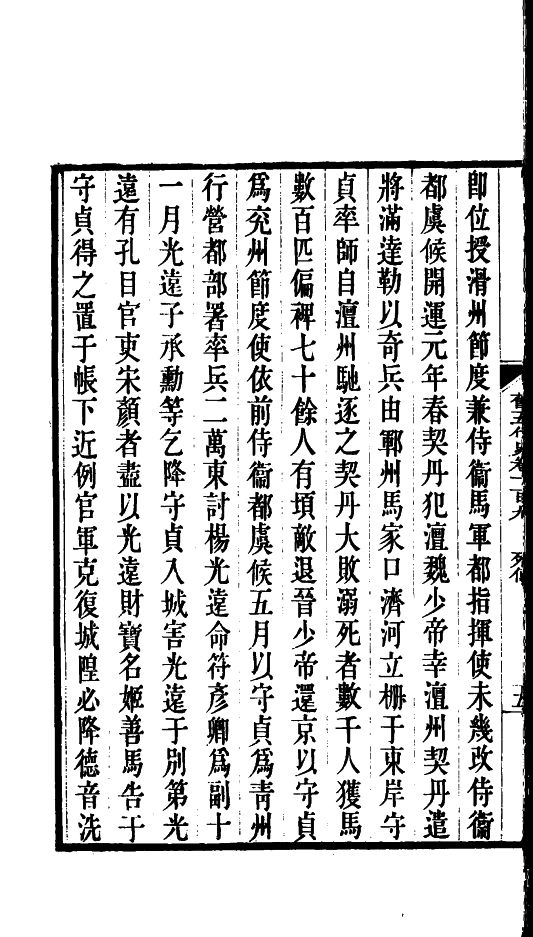 舊五代史卷一百九 列傳 五
卽位授滑州節度兼侍衞馬軍都指揮使未幾改侍衞
都虞候開運元年春契丹犯澶魏少帝幸澶州契丹遣
將滿達勒以奇兵由鄆州馬家口濟河立柵于東岸守
貞率師自澶州馳逐之契丹大敗溺死者數千人獲馬
數百匹偏裨七十餘人有頃敵退晉少帝還京以守貞
爲兖州節度使依前侍衞都虞候五月以守貞爲靑州
行營都部署率兵二萬東討楊光遠命符彥卿爲副十
一月光遠子承勳等乞降守貞入城害光遠于別第光
遠有孔目官吏宋顏者盡以光遠財寶名姬善馬告于
守貞得之置于帳下近例官軍克復城隍必降德音洗